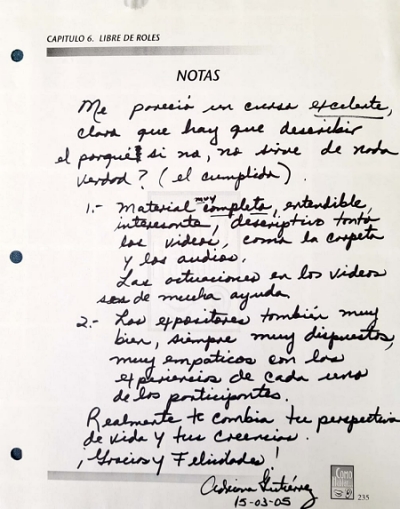 CAPITULO 6. LIBRE DE ROLES
NOTAS
Me pareció un curso excelente,
claro que hay que describir
el porqué si no, no sirve de nada
verdad? (el cumplido).
1.- Material muy completo, entendible,
interesante, descriptivo tanto
los videos, como la carpeta
y los audios.
Las actuaciones en los videos
son de mucha ayuda.
2.- Los expositores también muy
bien, siempre muy dispuestos,
muy empaticos con las
experiencias de cada uno
de los participantes.
Realmente te cambia tu perspectiva
de vida y tus creencias.
¡Gracias y Felicidades!
Adriana Gutiérrez
15-03-05
235